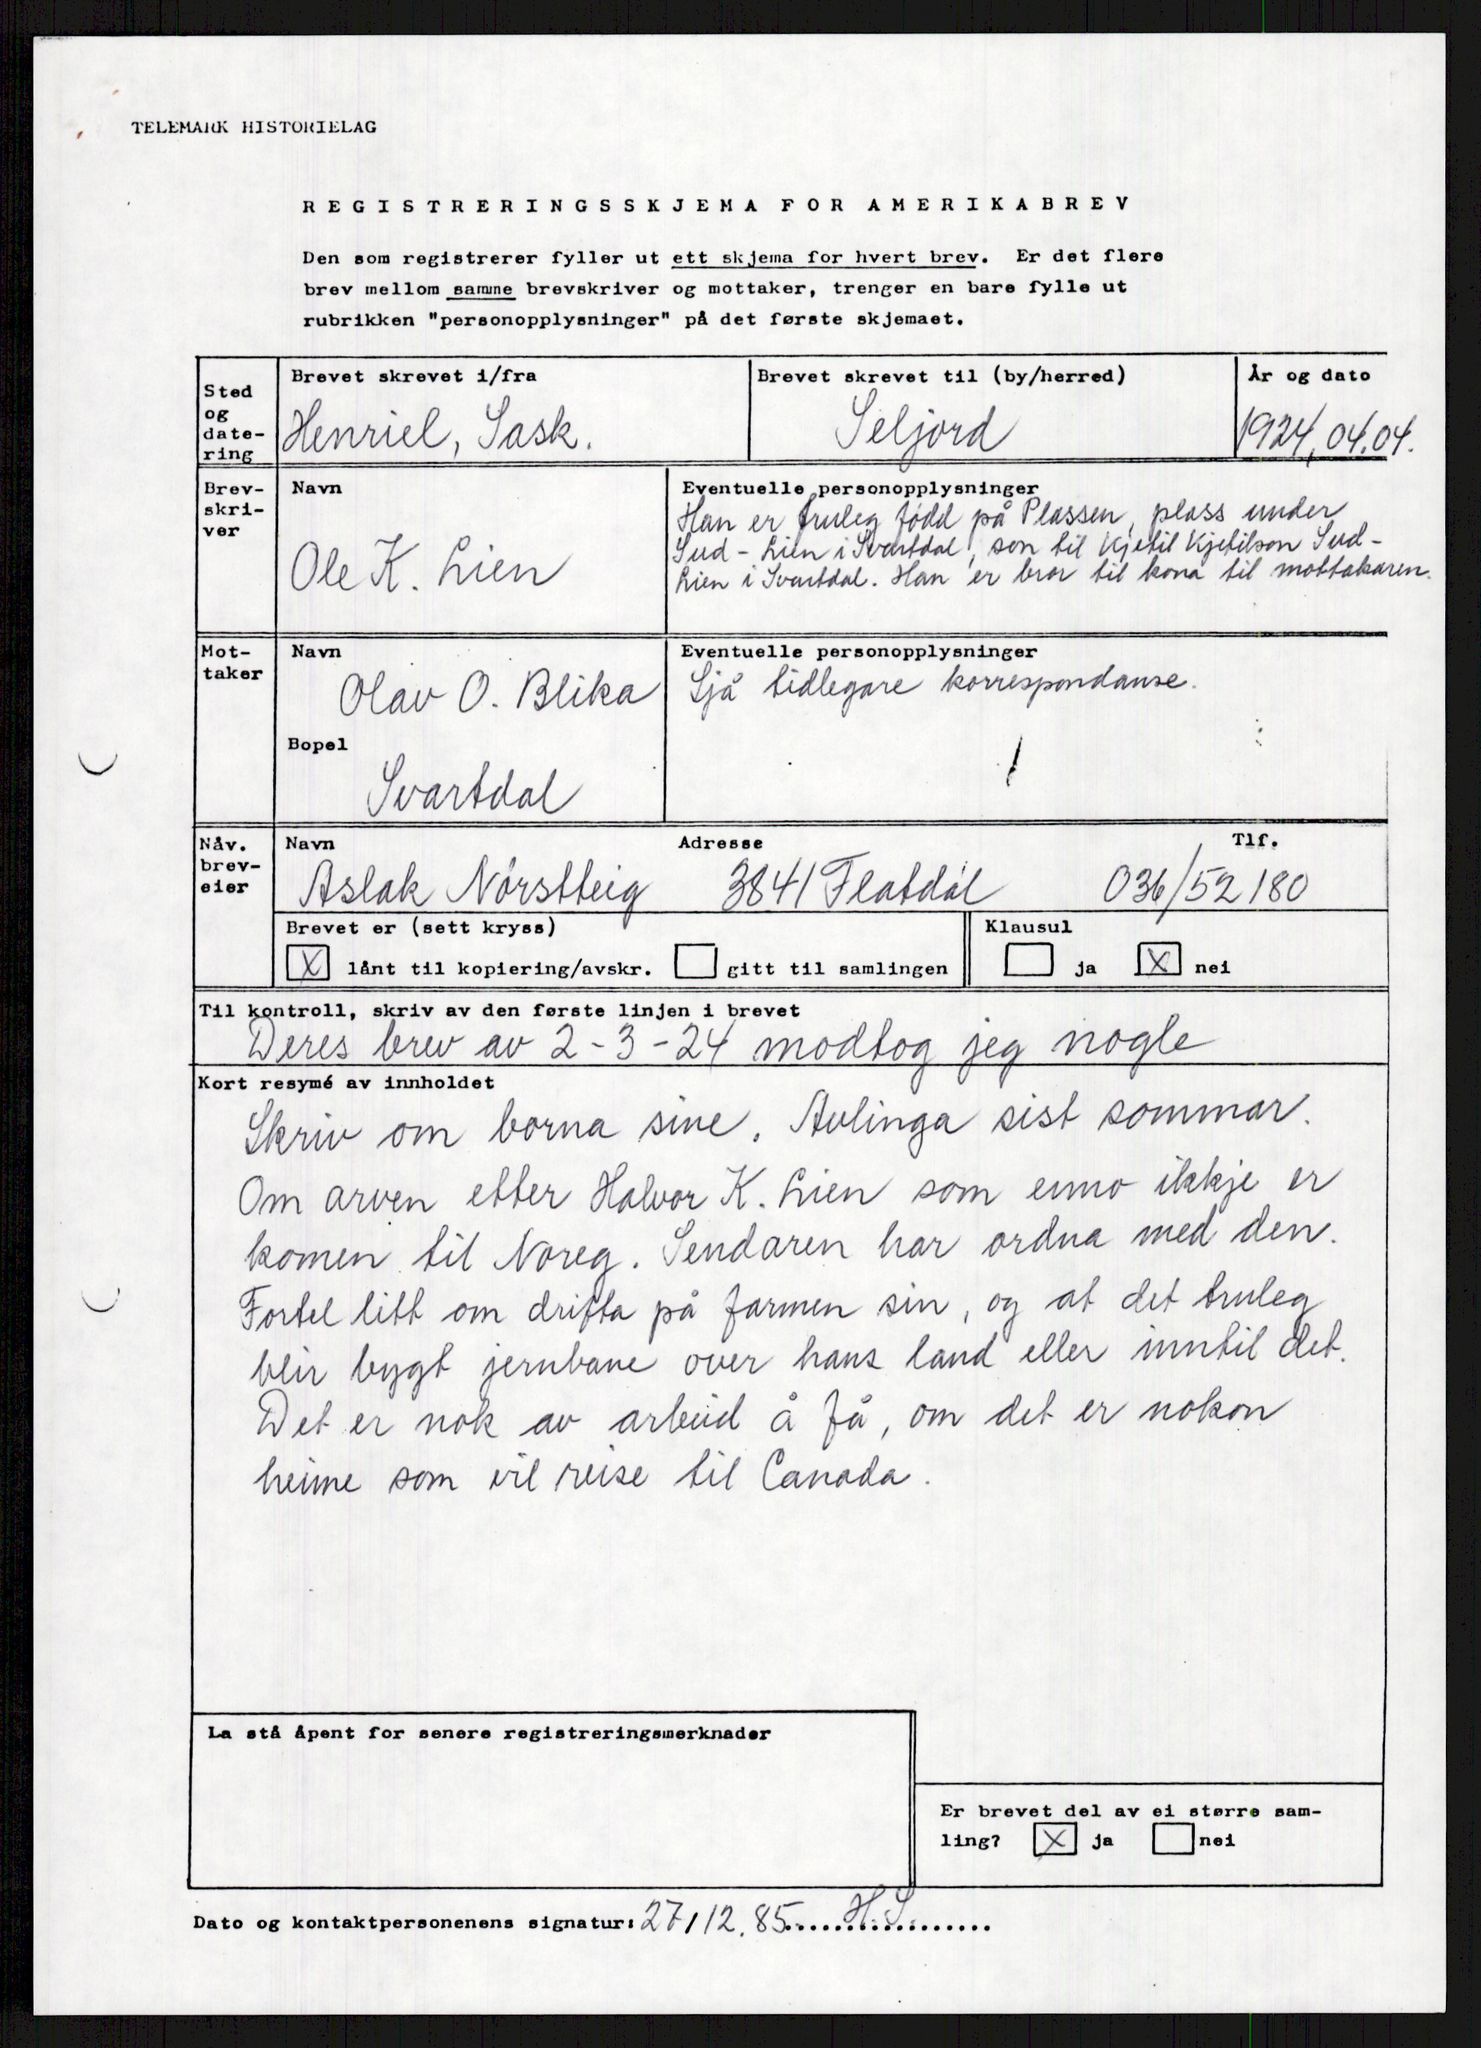 TELEMARK HISTORIELAG
REGISTRERINGSSKJEMA FOR AMERIKABREV
Den som registrerer fyller ut ett skjema for hvert brev. Er det flere
brev mellom samme brevskriver og mottaker, trenger en bare fylle ut
rubrikken "personopplysninger" på det første skjemaet.
Sted
og
date-
ring
Brevet skrevet i/fra
Henriel, Sask.
Brevet skrevet til (by/herred)
Seljord
År og dato
1924,04.04.
Brev-
skri-
ver
Navn
Ole K. Lien
Eventuelle personopplysninger
Han er truleg fødd på Plassen, plass under
Sud-Lien i Svartdal, son til Kjetil Kjetilson Sud-
Lien i Svartdal. Han er bror til kona til mottakaren.
Mot-
taker
Navn
Olav O. Blika
Bopel
Svartdal
Eventuelle personopplysninger
Sjå tidlegare korrespondanse.
Nåv.
brev-
eier
Navn
Aslak Nørstteig
Adresse
3841 Flatdal
Tlf.
036/52180
Brevet er (sett kryss)
X lånt til kopiering/avskr.
gitt til samlingen
Klausul
ja
X nei
Til kontroll, skriv av den første linjen i brevet
Deres brev av 2-3-24 modtog jeg nogle
Kort resymé av innholdet
Skriv om borna sine. Avlinga sist sommar.
Om arven etter Halvor K. Lien som enno ikkje er
komen til Noreg. Sendaren har ordna med den.
Fortel litt om drifta på farmen sin, og at det truleg
blir bygt jernbane over hans land eller inntil det.
Det er nok av arbeid å få, om det er nokon
heime som vil reise til Canada.
La stå åpent for senere registreringsmerknader
Er brevet del av ei større sam-
ling? X ja nei
Dato og kontaktpersonenens signatur: 27/12.85 H.S.